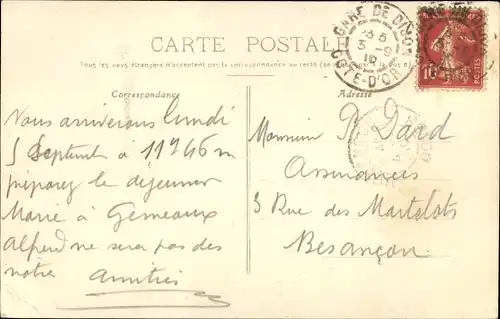 CARTE POSTALE
Tous les pays étrangers n'acceptent pas la correspondance au recto (se
Correspondance
Adresse
GARE DE DIJON
3 5
3 -9
10
CÔTE-D'OR
10
POSTES
Nous arriverons lundi
5 Septembre à 11h46m
préparez le déjeuner
Marie à Gemeaux
Alfred ne sera pas des
notre amitiés
Monsieur P. Dard
Assurances
3 Rue des Martelots
Besançon